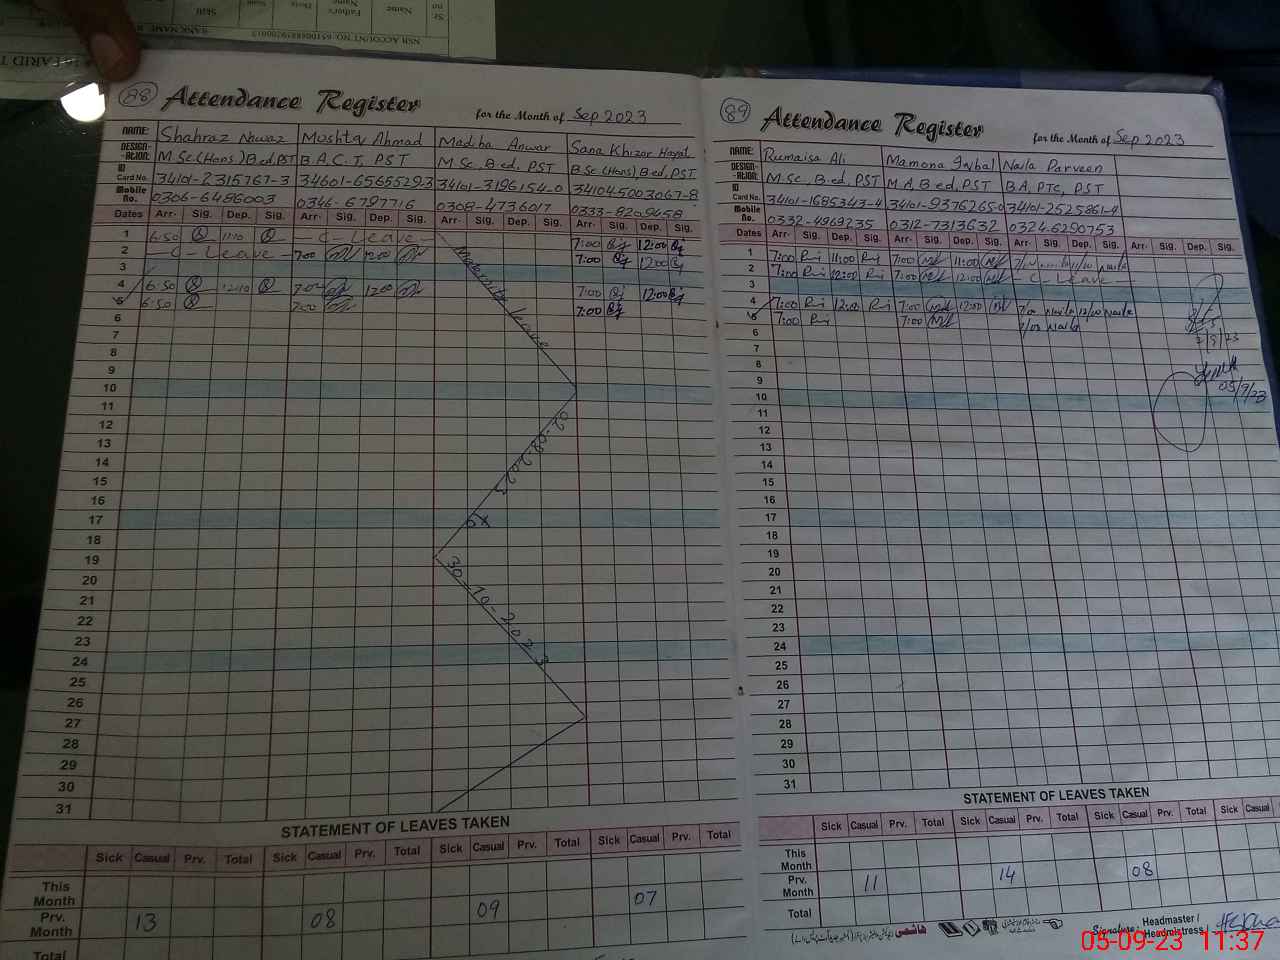 (88) Attendance Register for the Month of Sep 2023
NAME: Shahraz Nawaz Mushtq Ahmad Madiha Anwar Sana Khizar Hayat
DESIGN-ATION: M.Sc(Hons)B.ed,PST B.A.C.T, PST M.Sc, B.ed, PST B.Sc(Hons)B.ed,PST
ID Card No. 34101-2315767-3 34601-6565529-3 34101-3196154-0 34104-5003067-8
Mobile No. 0306-6486003 0346-6797716 0308-4736017 0333-8209658
Dates Arr- Sig. Dep. Sig. Arr- Sig. Dep. Sig. Arr- Sig. Dep. Sig. Arr- Sig. Dep. Sig.
1 6:50 11:10 - C - Leave - 7:00 12:00
2 - C - Leave - 7:00 1200 7:00 12:00
3
4 6:50 12:10 7:00 1200 7:00 12:00
5 6:50 7:00 7:00
6
7
8
9
10
11
12
13
14
15
16
17
18
19
20
21
22
23
24
25
26
27
28
29
30
31
Maternity Leave
02-08-2023
to
30-10-2023
STATEMENT OF LEAVES TAKEN
Sick Casual Prv. Total Sick Casual Prv. Total Sick Casual Prv. Total Sick Casual Prv. Total
This Month 07
Prv. Month 13 08 09
Total
(89) Attendance Register for the Month of Sep 2023
NAME: Rumaisa Ali Mamona Iqbal Naila Parveen
DESIGN-ATION: M.Sc, B.ed, PST M.A, B.ed, PST B.A, PTC, PST
ID Card No. 34101-1685343-4 34101-9376265-0 34101-2525861-4
Mobile No. 0332-4969235 0312-7313632 0324-6290753
Dates Arr- Sig. Dep. Sig. Arr- Sig. Dep. Sig. Arr- Sig. Dep. Sig. Arr- Sig. Dep. Sig.
1 7:00 11:00 7:00 11:00 Naila
2 7:00 12:00 7:00 12:00 - C - Leave -
3
4 7:00 12:00 7:00 12:00 7/00 Naila 12/00 Naila
5 7:00 7:00 7/00 Naila
6
7
8
9
10
11
12
13
14
15
16
17
18
19
20
21
22
23
24
25
26
27
28
29
30
31
05/9/23
STATEMENT OF LEAVES TAKEN
Sick Casual Prv. Total Sick Casual Prv. Total Sick Casual Prv. Total Sick Casual
This Month
Prv. Month 11 14 08
Total
Signature: Headmaster / Headmistress
05-09-23 11:37